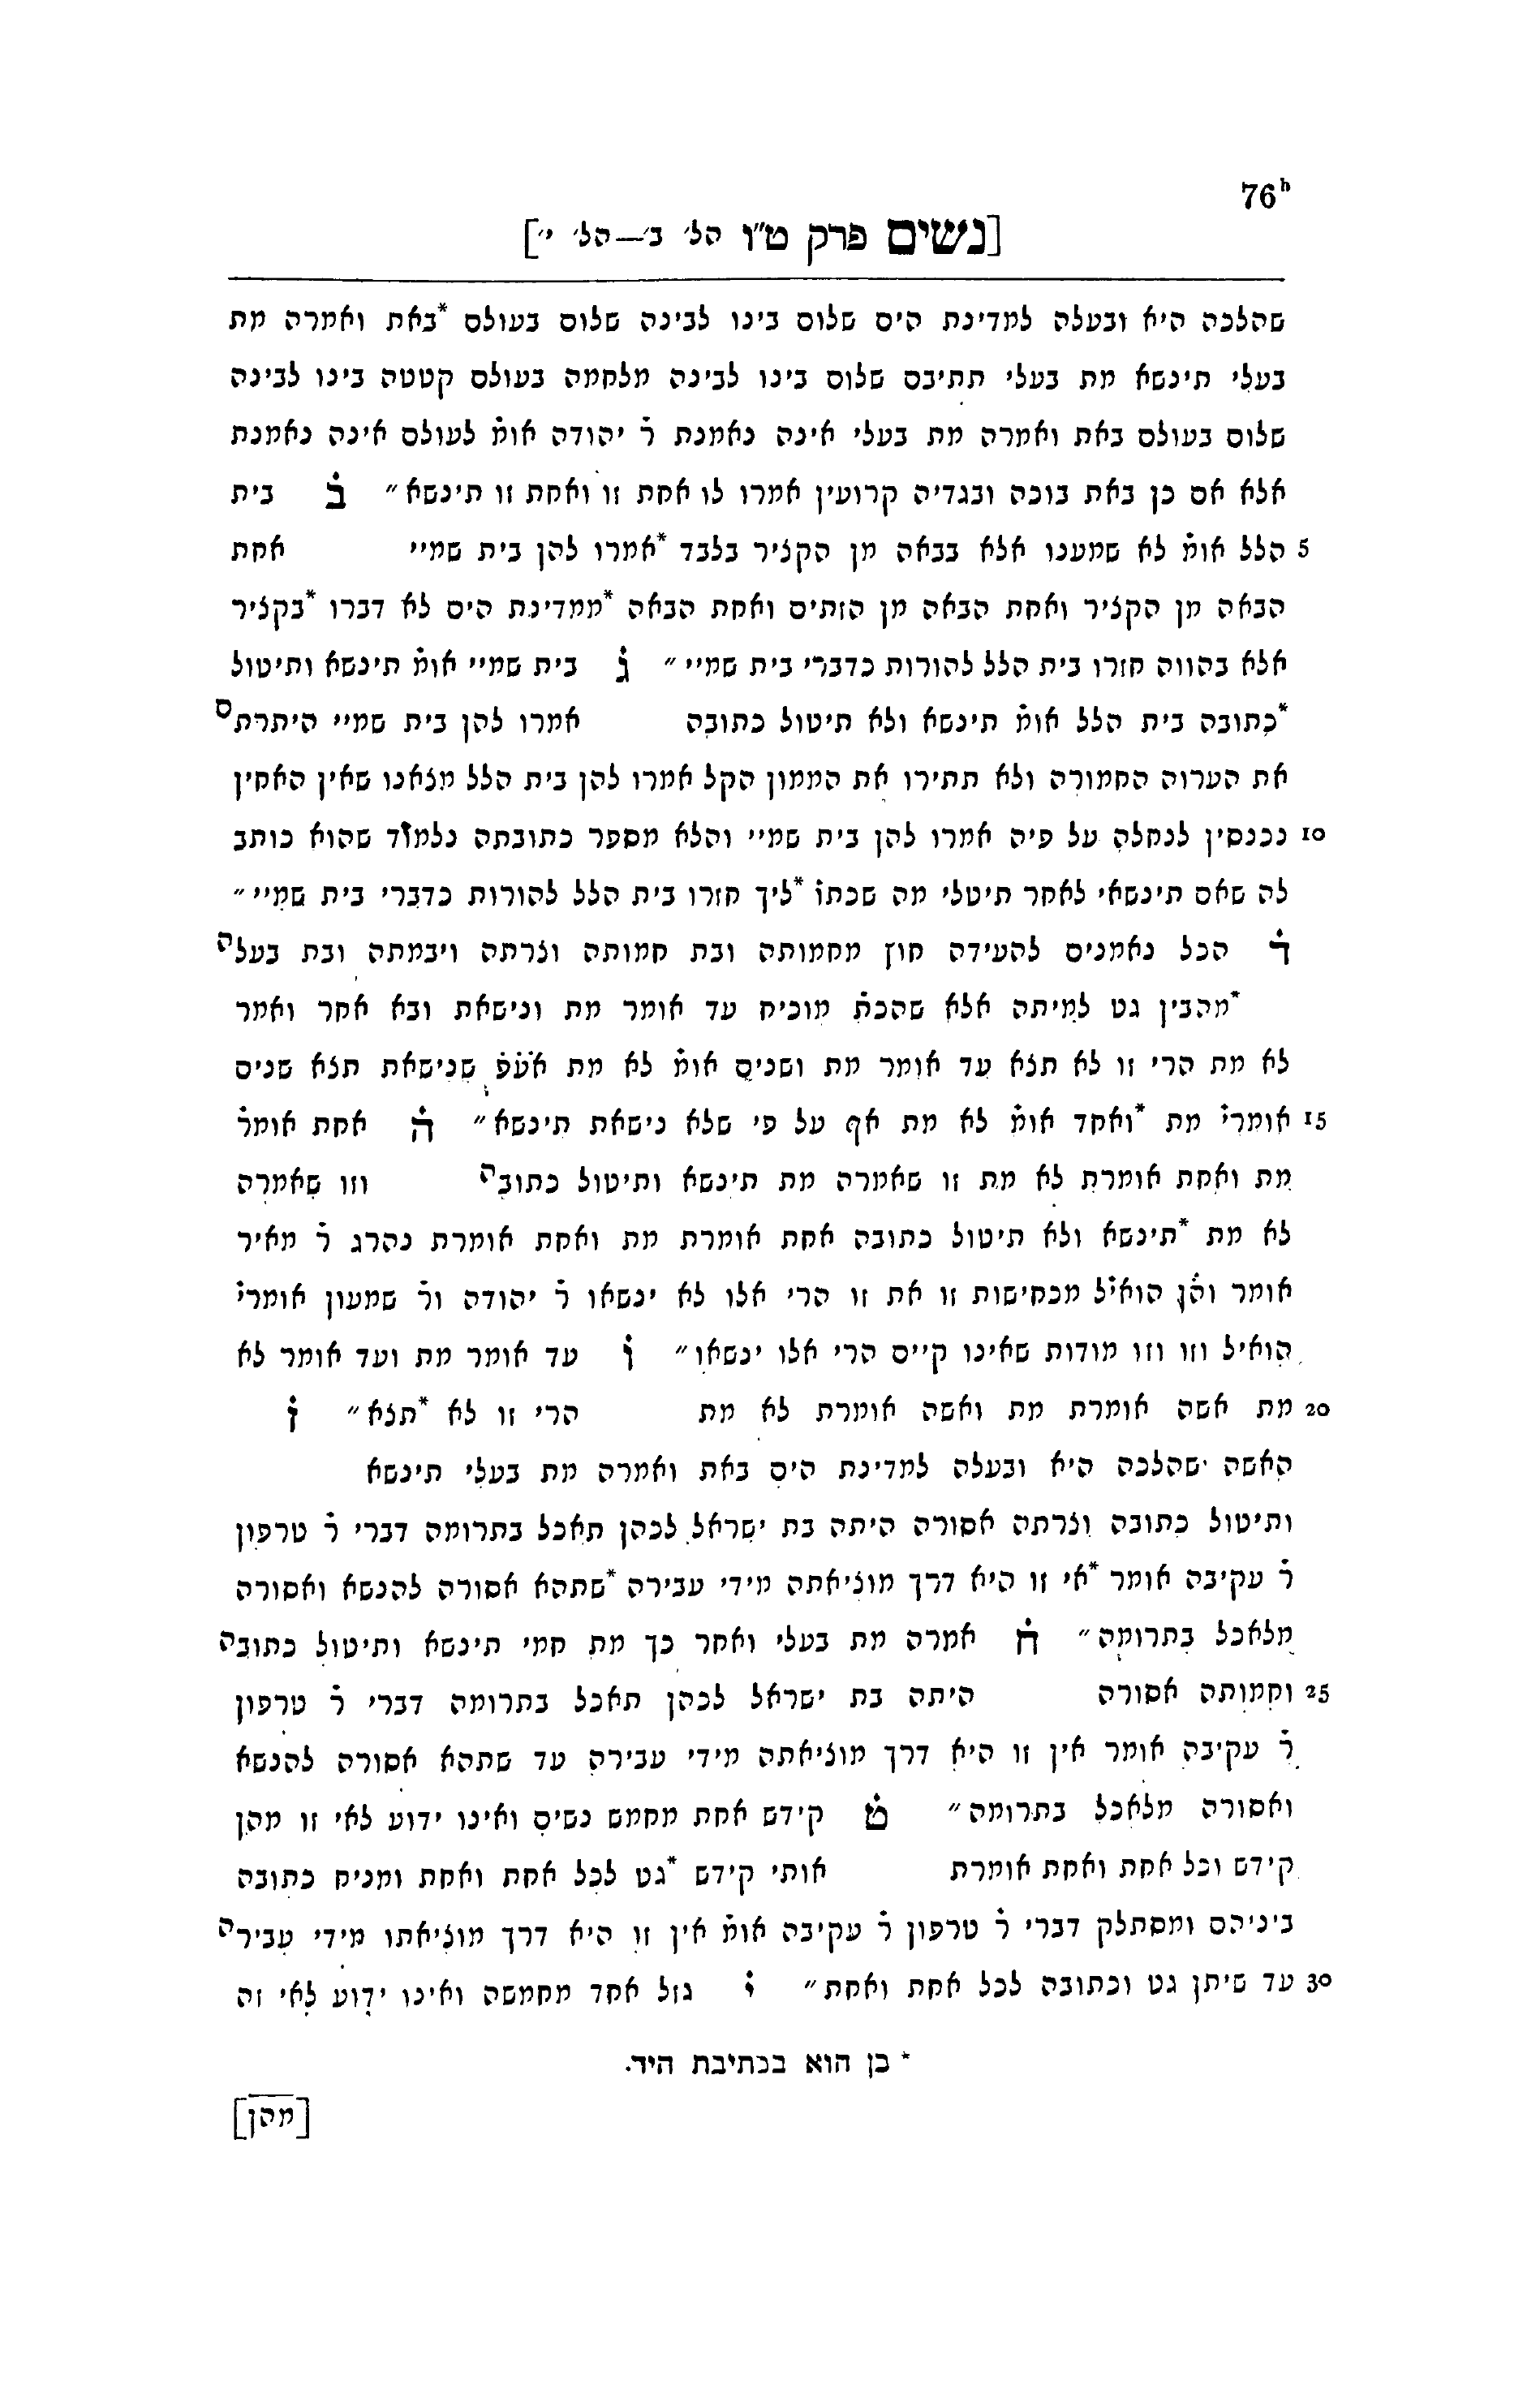 76ʰ
[נשים פרק ט"ו הל' ב'—הל' י']
שהלכה היא ובעלה למדינת הים שלום בינו לבינה שלום בעולם *באת ואמרה מת
בעלי תינשא מת בעלי תתיבם שלום בינו לבינה מלחמה בעולם קטטה בינו לבינה
שלום בעולם באת ואמרה מת בעלי אינה נאמנת ר̇ יהודה אומ̇ לעולם אינה נאמנת
אלא אם כן באת בוכה ובגדיה קרועין אמרו לו אחת זו ואחת זו תינשא״ ב̇ בית
5 הלל אומ̇ לא שמענו אלא בבאה מן הקציר בלבד *אמרו להן בית שמיי אחת
הבאה מן הקציר ואחת הבאה מן הזתים ואחת הבאה *ממדינת הים לא דברו *בקציר
אלא בהווה חזרו בית הלל להורות כדברי בית שמיי״ ג̇ בית שמיי אומ̇ תינשא ותיטול
*כתובה בית הלל אומ̇ תינשא ולא תיטול כתובה אמרו להן בית שמיי היתרתם
את הערוה החמורה ולא תתירו את הממון הקל אמרו להן בית הלל מצאנו שאין האחין
10 נכנסין לנחלה על פיה אמרו להן בית שמיי והלא מספר כתובתה נלמוד שהוא כותב
לה שאם תינשאי לאחר תיטלי מה שכתו̇ *ליך חזרו בית הלל להורות כדברי בית שמיי״
ד̇ הכל נאמנים להעידה חוץ מחמותה ובת חמותה וצרתה ויבמתה ובת בעלה
*מהבין גט למיתה אלא שהכת̇ מוכיח עד אומר מת ונישאת ובא אחר ואמר
לא מת הרי זו לא תצא עד אומר מת ושנים אומ̇ לא מת א̇ע̇פ̇ שנישאת תצא שנים
15 אומרי̇ מת *ואחד אומ̇ לא מת אף על פי שלא נישאת תינשא״ ה̇ אחת אומר̇
מת ואחת אומרת לא מת זו שאמרה מת תינשא ותיטול כתובה וזו שאמרה
לא מת *תינשא ולא תיטול כתובה אחת אומרת מת ואחת אומרת נהרג ר̇ מאיר
אומר והן הואיל מכחישות זו את זו הרי אלו לא ינשאו ר̇ יהודה ור̇ שמעון אומרי̇
הואיל וזו וזו מודות שאינו קיים הרי אלו ינשאו״ ו̇ עד אומר מת ועד אומר לא
20 מת אשה אומרת מת ואשה אומרת לא מת הרי זו לא *תצא״ ז̇
האשה שהלכה היא ובעלה למדינת הים באת ואמרה מת בעלי תינשא
ותיטול כתובה וצרתה אסורה היתה בת ישראל לכהן תאכל בתרומה דברי ר̇ טרפון
ר̇ עקיבה אומר *אי זו היא דרך מוציאתה מידי עבירה *שתהא אסורה להנשא ואסורה
מלאכל בתרומה״ ח̇ אמרה מת בעלי ואחר כך מת חמי תינשא ותיטול כתובה
25 וחמותה אסורה היתה בת ישראל לכהן תאכל בתרומה דברי ר̇ טרפון
ר̇ עקיבה אומר אין זו היא דרך מוציאתה מידי עבירה עד שתהא אסורה להנשא
ואסורה מלאכל בתרומה״ ט̇ קידש אחת מחמש נשים ואינו ידוע לאי זו מהן
קידש וכל אחת ואחת אומרת אותי קידש *גט לכל אחת ואחת ומניח כתובה
ביניהם ומסתלק דברי ר̇ טרפון ר̇ עקיבה אומ̇ אין זו היא דרך מוציאתו מידי עבירה
30 עד שיתן גט וכתובה לכל אחת ואחת״ י̇ גזל אחד מחמשה ואינו ידוע לאי זה
* כן הוא בכתיבת היד.
[מהן]